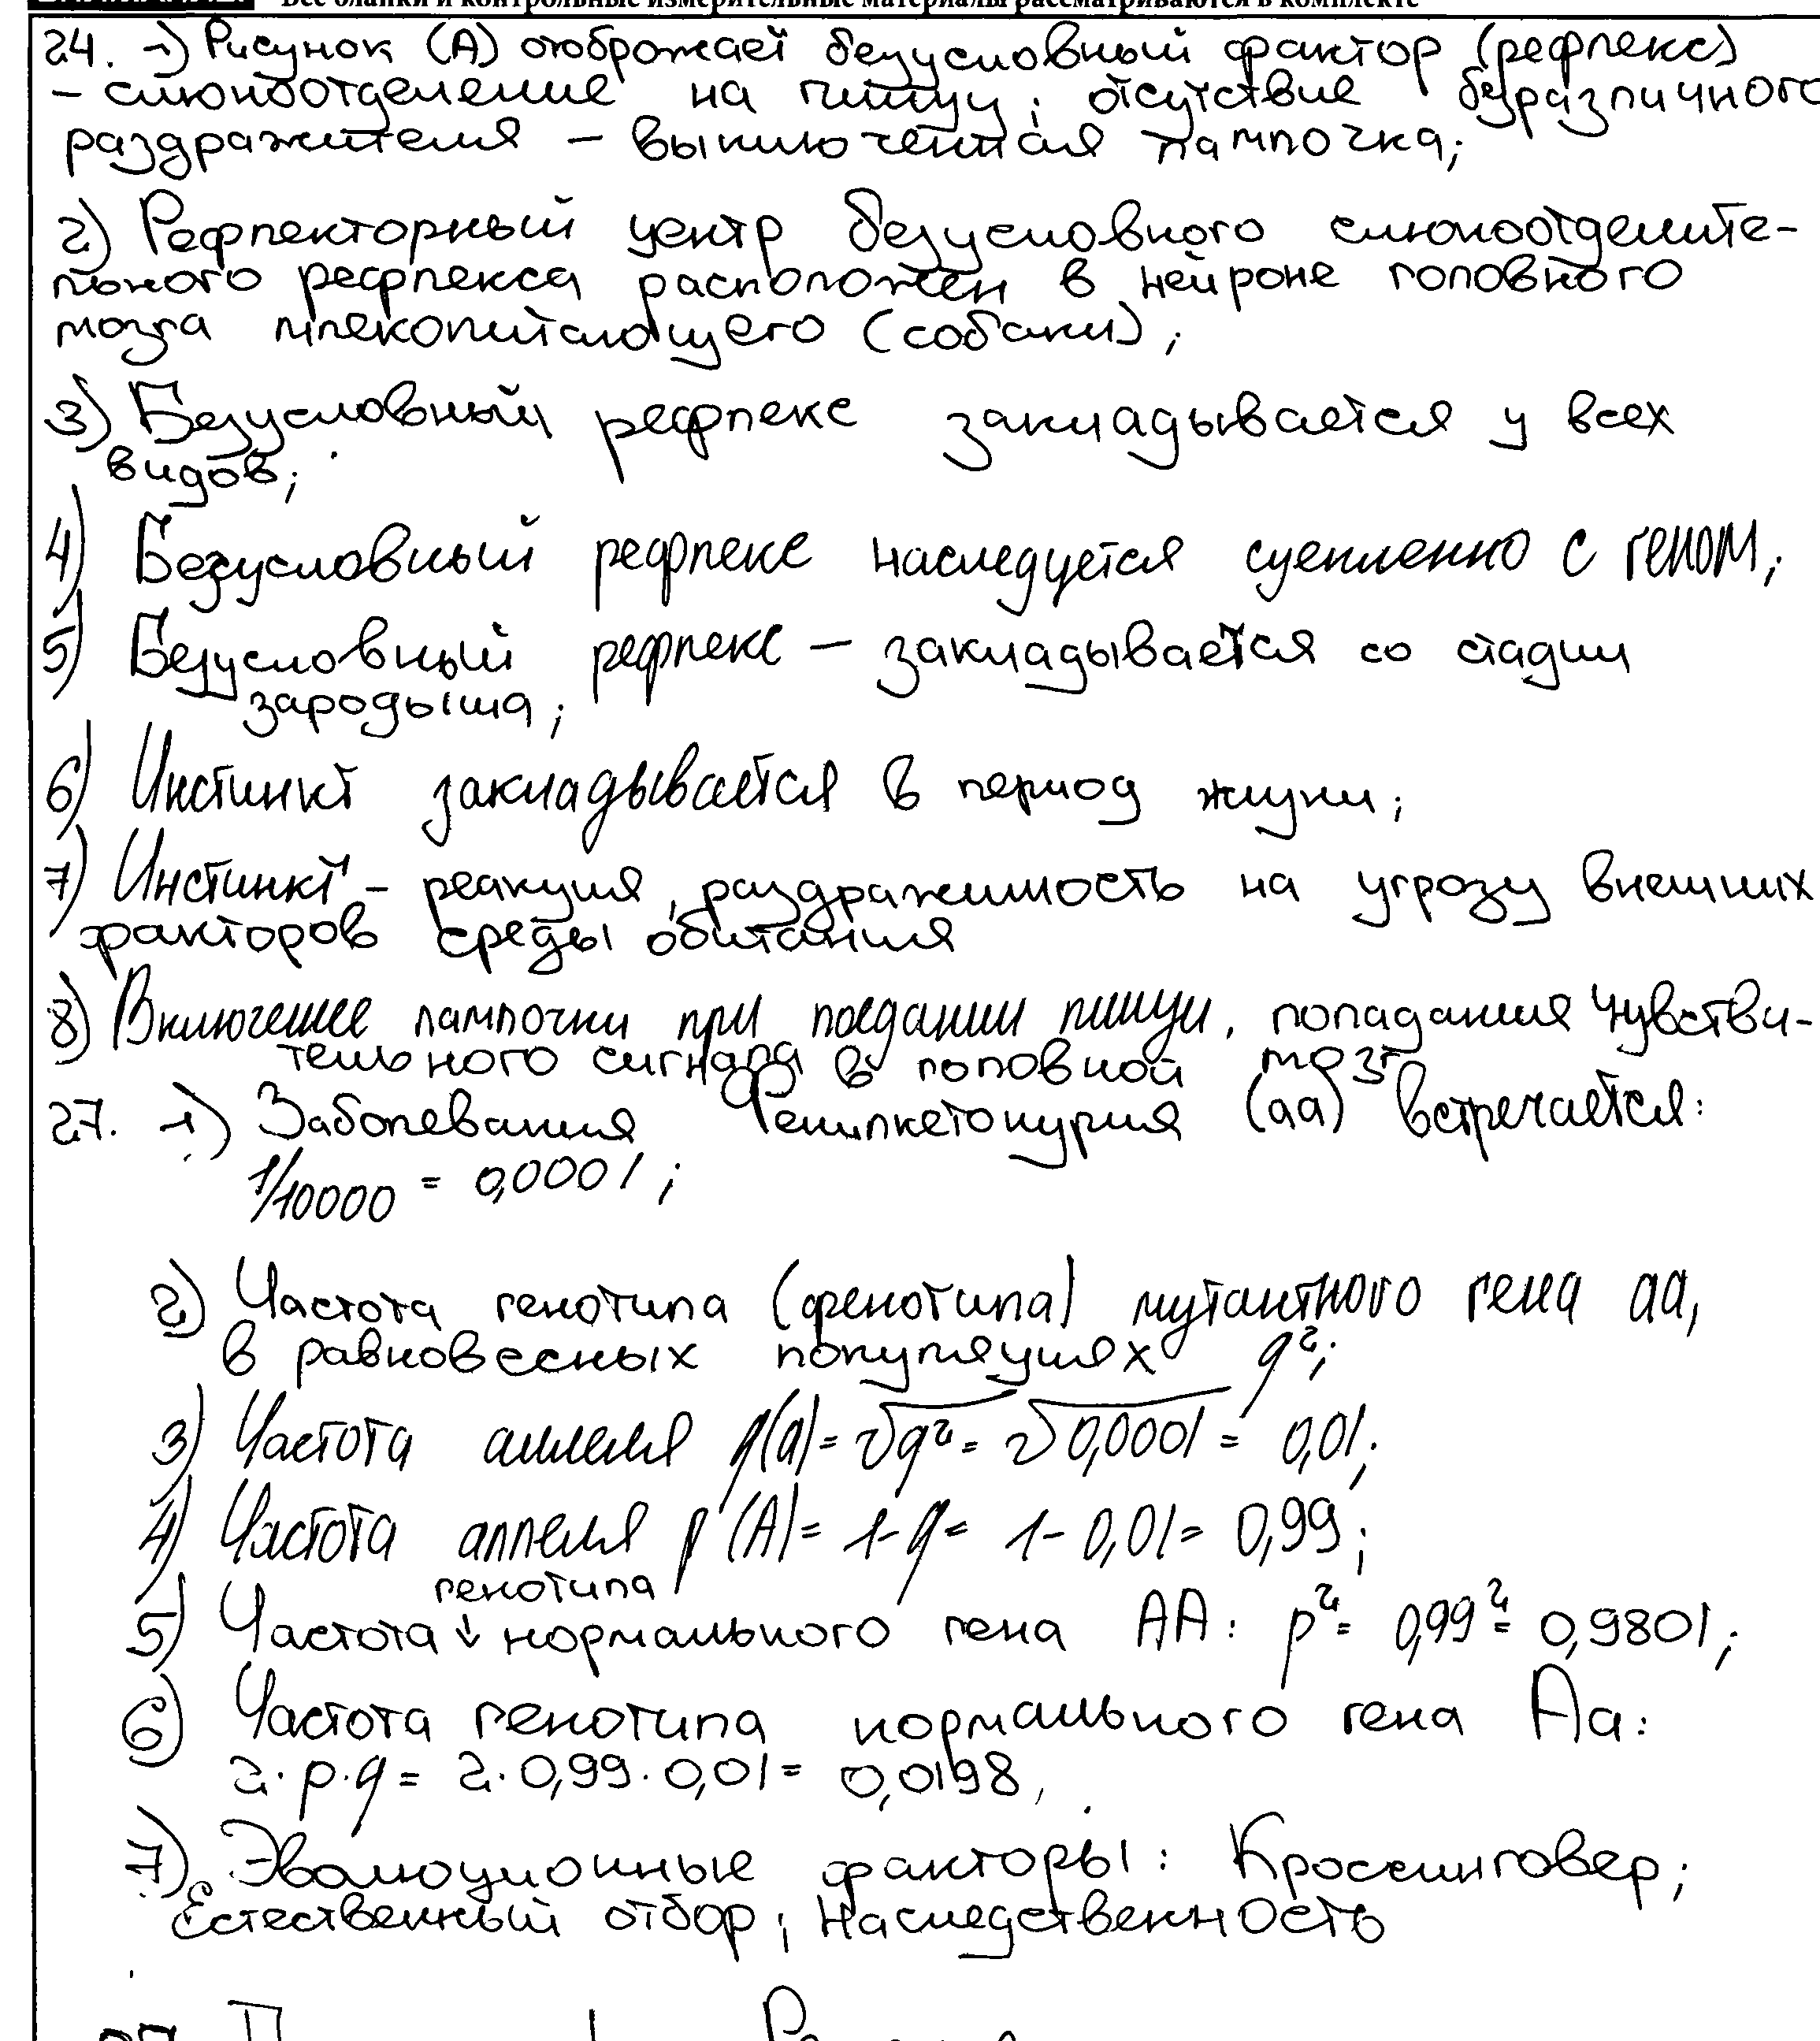 Все бланки и контрольные измерительные материалы рассматриваются в комплекте
24. 1) Рисунок (А) отоброжает безусловный фактор (рефлекс)
– слюноотделение на пищу, отсутствие безразличного
раздражителя – выключенная лампочка;
2) Рефлекторный центр безусловного слюноотделите-
льного рефлекса расположен в нейроне головного
мозга млекопитающего (собаки);
3) Безусловный рефлекс закладывается у всех
видов;
4) Безусловный рефлекс наследуется сцепленно с геном;
5) Безусловный рефлекс – закладывается со стадии
зародыша;
6) Инстинкт закладывается в период жизни;
7) Инстинкт – реакция, раздражимость на угрозу внешних
факторов среды обитания
8) Включение лампочки при поедании пищи, попадания чувстви-
тельного сигнала в головной мозг
27. 1) Заболевания Фенилкетонурия (аа) встречается:
1/10000 = 0,0001;
2) Частота генотипа (фенотипа) мутантного гена аа,
в равновесных популяциях q²;
3) Частота аллеля q(a)= √q² = √0,0001 = 0,01;
4) Частота аллеля p(A)= 1-q= 1-0,01= 0,99;
генотипа
5) Частота ↓ нормального гена АА: p²= 0,99²= 0,9801;
6) Частота генотипа нормального гена Аа:
2·p·q = 2·0,99·0,01= 0,0198,
7) Эволюционные факторы: Кроссинговер;
Естественный отбор; Наследственность